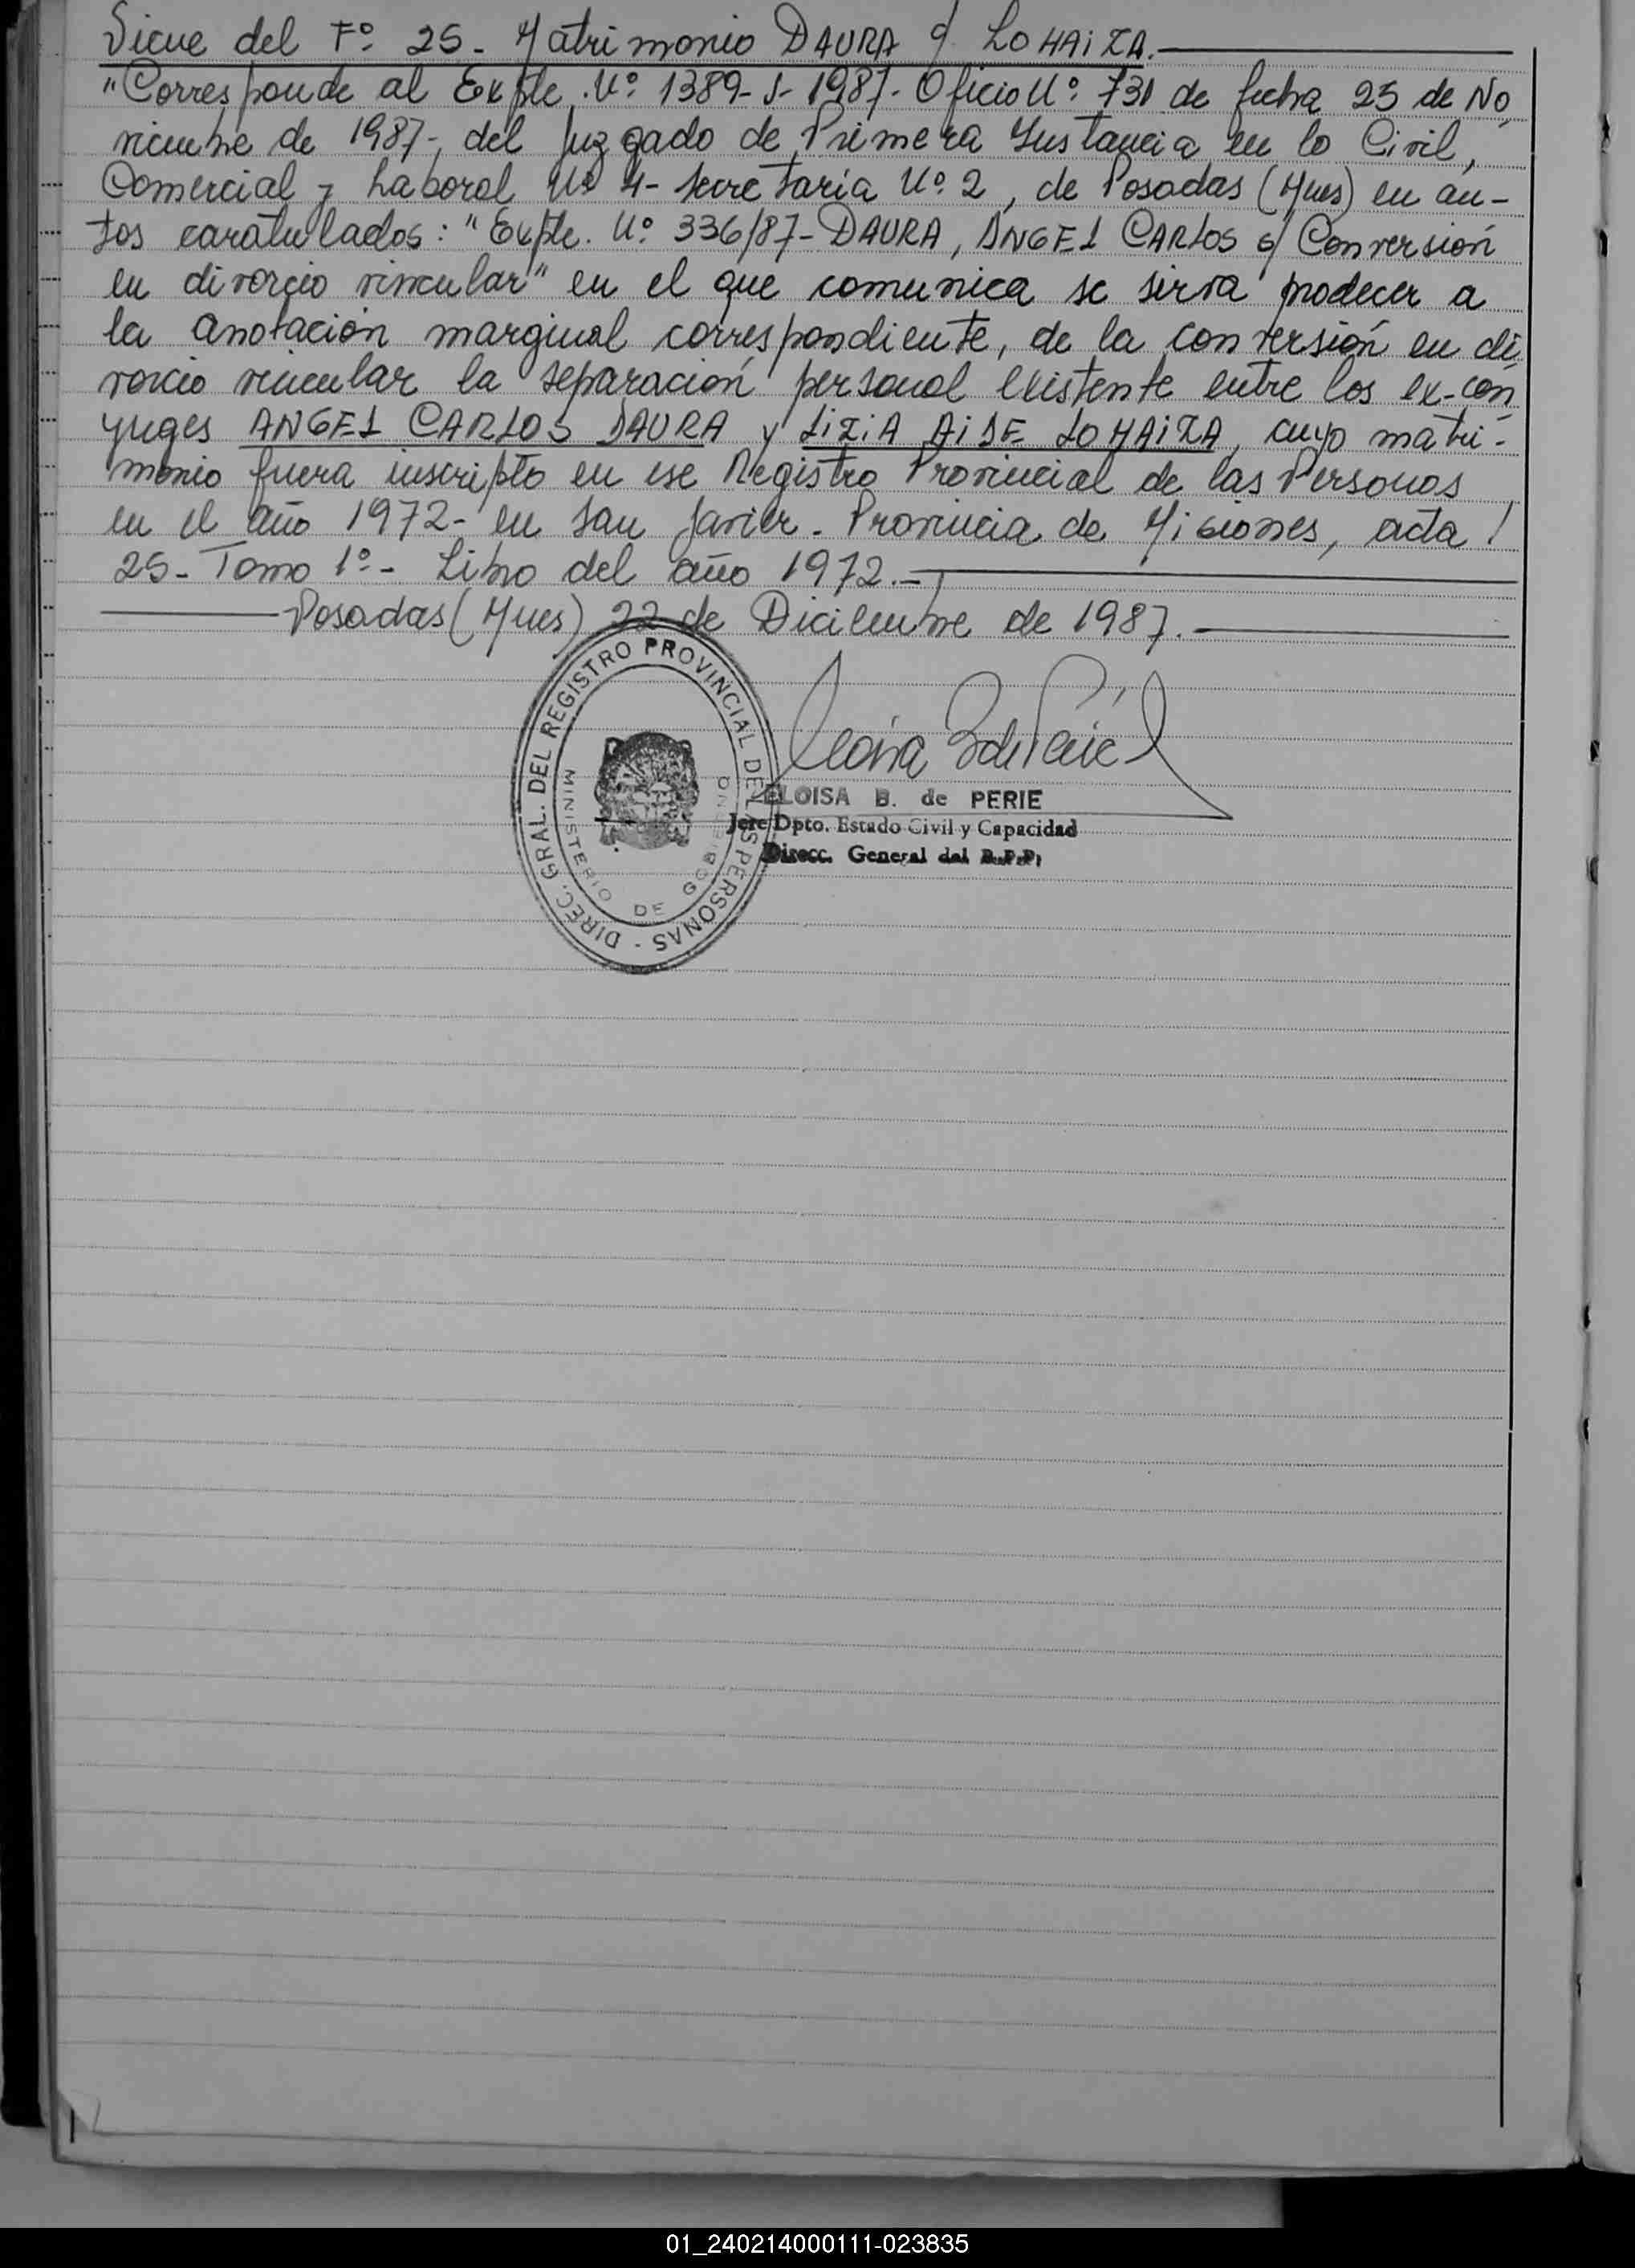 Viene del Fº 25- Matrimonio DAURA c/ LOHAIZA.
"Corresponde al Expte. Nº 1389-S-1987- Oficio Nº 731 de fecha 25 de No
viembre de 1987-, del Juzgado de Primera Instancia en lo Civil,
Comercial y Laboral Nº 4- Secretaría Nº 2, de Posadas (Mnes) en au-
tos caratulados: "Expte. Nº 336/87- DAURA, ANGEL CARLOS s/ Conversión
en divorcio vincular" en el que comunica se sirva prodecer a
la anotación marginal correspondiente, de la conversión en di
vorcio vincular la separación personal existente entre los ex-cón
yuges ANGEL CARLOS DAURA y LIZIA AIDE LOHAIZA, cuyo matri-
monio fuera inscripto en ese Registro Provincial de las Personas
en el año 1972- en San Javier- Provincia de Misiones, acta
25- Tomo 1º- Libro del año 1972.-
Posadas (Mnes) 22 de Diciembre de 1987.
DIREC. GRAL. DEL REGISTRO PROVINCIAL DE LAS PERSONAS -
MINISTERIO DE GOBIERNO
ELOISA B. de PERIE
Jefe Dpto. Estado Civil y Capacidad
Direcc. General del R.P.P.
01_240214000111-023835